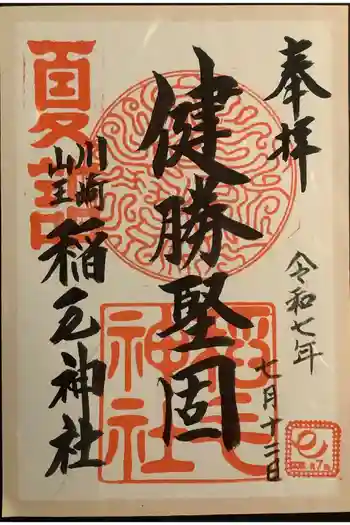 奉拝
令和七年
七月十二日
健勝堅固
夏詣
川崎
山王
稲毛神社
稲毛
神社